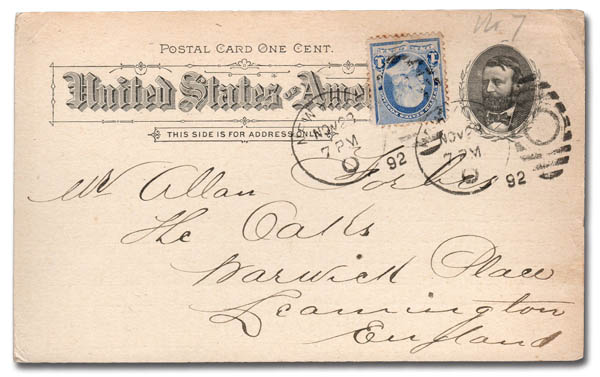 No 7
POSTAL CARD ONE CENT.
United States of Ame
THIS SIDE IS FOR ADDRESS ONLY
NEW
NOV 29
7 PM
92
NOV 29
7 PM
92
Mr Allan Forbes
The Oaks
Warwick Place
Leamington
England